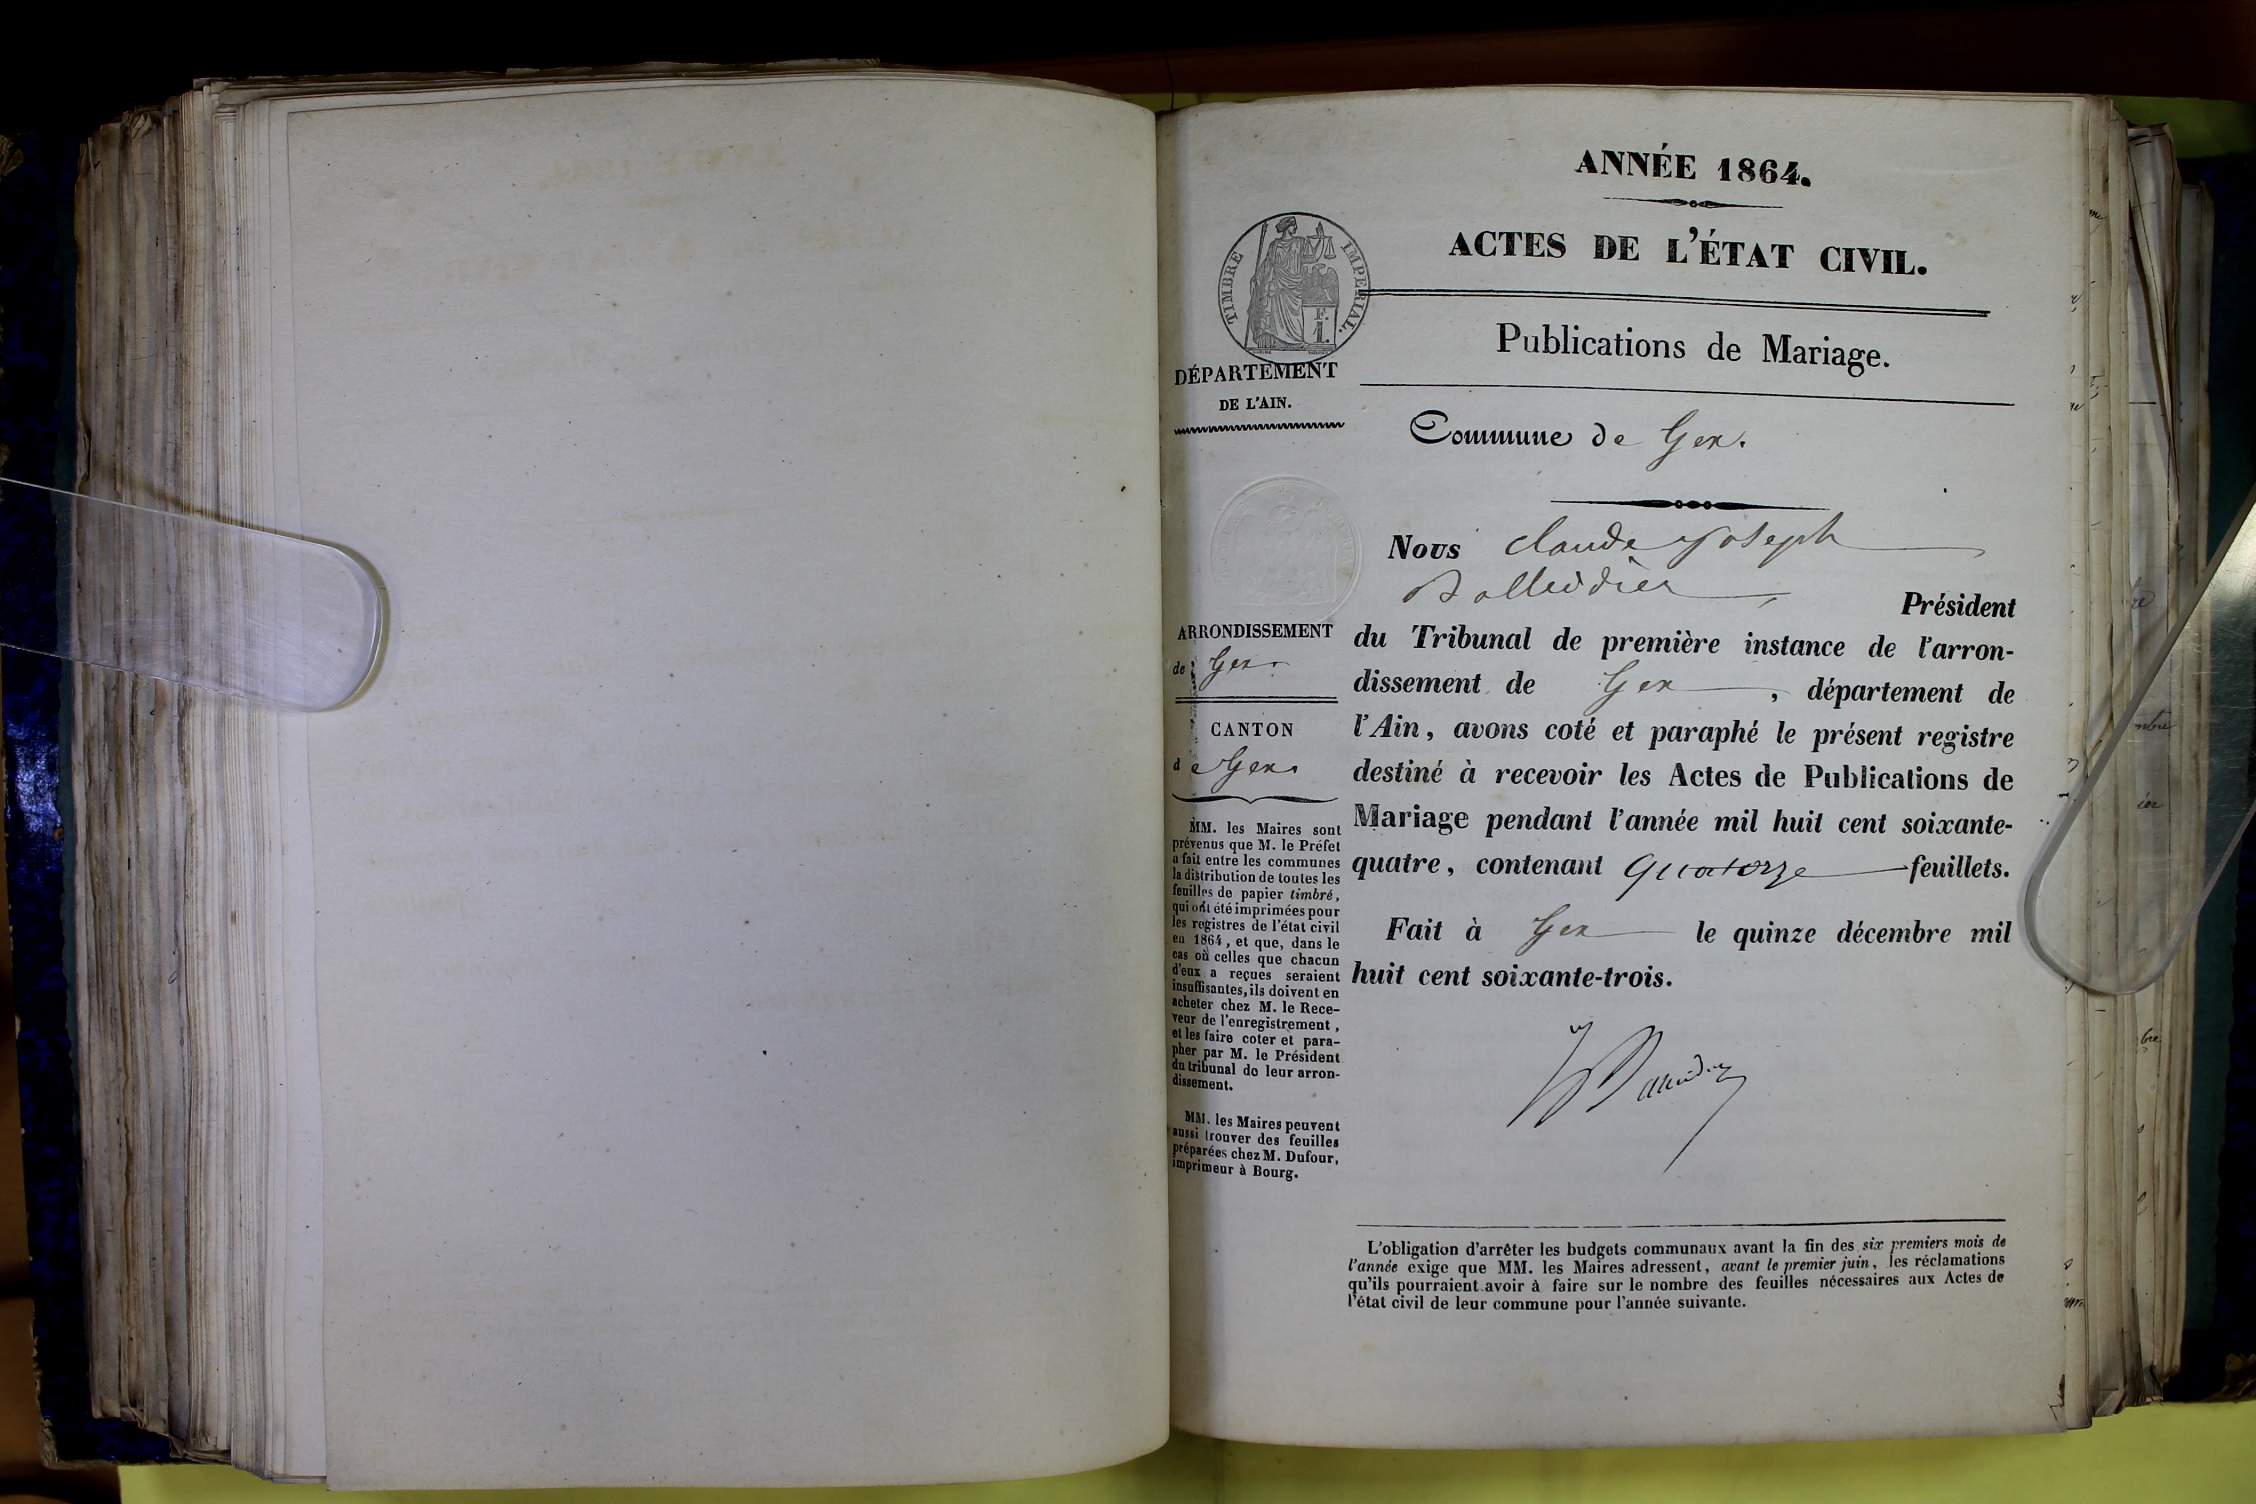 ANNÉE 1864.
ACTES DE L'ÉTAT CIVIL.
TIMBRE IMPERIAL.
F.
1.
Publications de Mariage.
DÉPARTEMENT
DE L'AIN.
Commune de Gex.
Nous Claude Joseph
Balleidier
Président
du Tribunal de première instance de l'arron-
dissement de Gex, département de
l'Ain, avons coté et paraphé le présent registre
destiné à recevoir les Actes de Publications de
Mariage pendant l'année mil huit cent soixante-
quatre, contenant quatorze feuillets.
Fait à Gex le quinze décembre mil
huit cent soixante-trois.
ARRONDISSEMENT
de Gex.
CANTON
de Gex.
MM. les Maires sont
prévenus que M. le Préfet
a fait entre les communes
la distribution de toutes les
feuilles de papier timbré,
qui ont été imprimées pour
les registres de l'état civil
en 1864, et que, dans le
cas où celles que chacun
d'eux a reçues seraient
insuffisantes, ils doivent en
acheter chez M. le Rece-
veur de l'enregistrement,
et les faire coter et para-
pher par M. le Président
du tribunal de leur arron-
dissement.
MM. les Maires peuvent
aussi trouver des feuilles
préparées chez M. Dufour,
imprimeur à Bourg.
L'obligation d'arrêter les budgets communaux avant la fin des six premiers mois de
l'année exige que MM. les Maires adressent, avant le premier juin, les réclamations
qu'ils pourraient avoir à faire sur le nombre des feuilles nécessaires aux Actes de
l'état civil de leur commune pour l'année suivante.